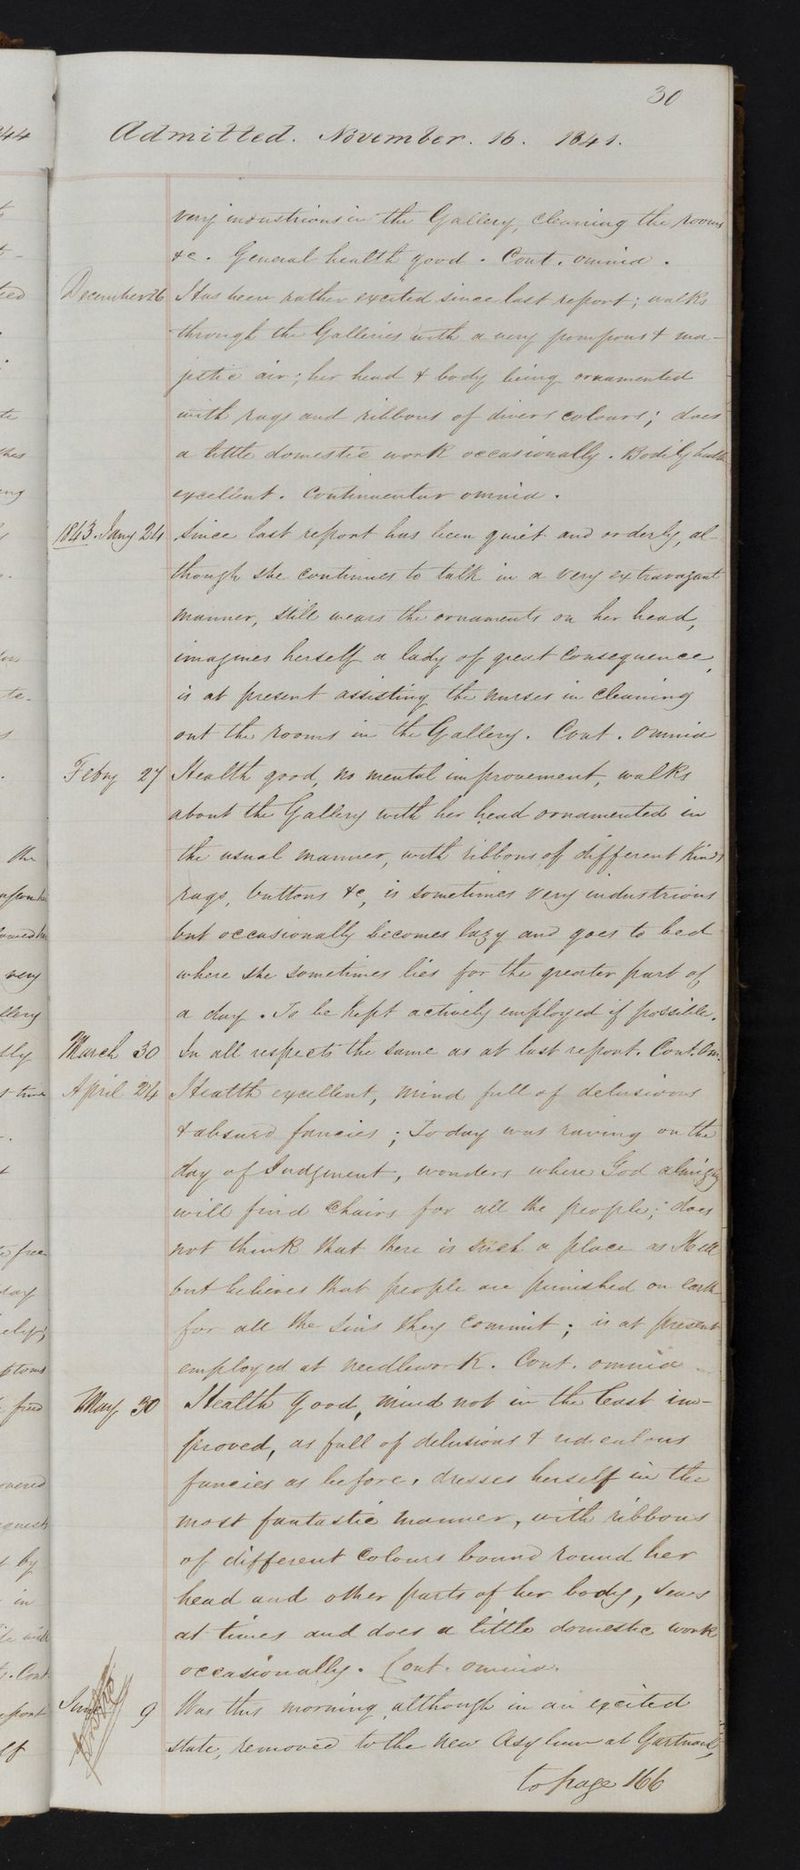 30
Admitted. November. 16. 1841.
very industrious in the Gallery, cleaning the rooms
&c. General health good. Cont. omnia.
December 26 Has been rather excited since last report; walks
through the Galleries with a very pompous & ma-
jestic air; her head & body being ornamented
with rags and ribbons of divers colours; does
a little domestic work occasionally. Bodily health
excellent. Continuentur omnia.
1843. Jany 24 Since last report has been quiet and orderly, al-
though she continues to talk in a very extravagant
manner, still wears the ornaments on her head,
imagines herself a lady of great consequence,
is at present assisting the nurses in cleaning
out the rooms in the Gallery. Cont. omnia
Febry 27 Health good, no mental improvement, walks
about the Gallery with her head ornamented in
the usual manner, with ribbons of different kinds
rags, buttons &c, is sometimes very industrious
but occasionally becomes lazy and goes to bed
where she sometimes lies for the greater part of
a day. To be kept actively employed if possible.
March 30 In all respects the same as at last report. Cont. Om.
April 24 Health excellent, mind full of delusions
& absurd fancies; To day was raving on the
day of Judgment, wonders where God almighty
will find chairs for all the people; does
not think that there is such a place as Hell
but believes that people are punished on earth
for all the sins they commit; is at present
employed at needlework. Cont. omnia
May 30 Health good, mind not in the least im-
proved, as full of delusions & rediculous
fancies as before, dresses herself in the
most fantastic manner, with ribbons
of different colours bound round her
head and other parts of her body, sews
at times and does a little domestic work
occasionally. Cont. omnia.
June 9 Was this morning, although in an excited
state, removed to the new Asylum at Gartnavel,
to page 166